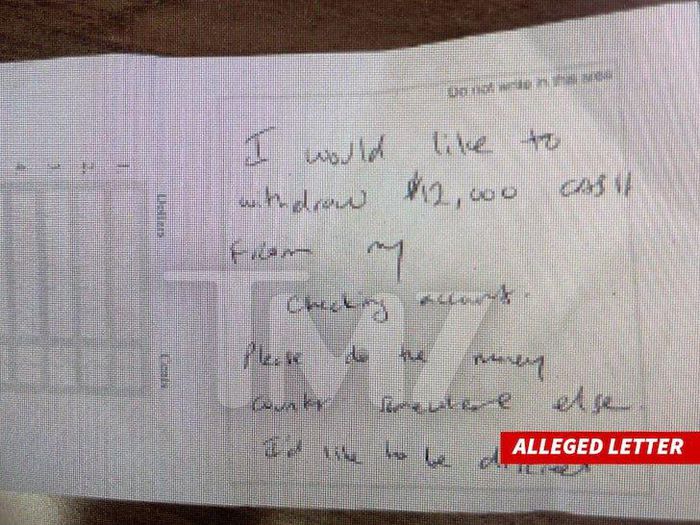 Do not write in this area
I would like to
withdraw $12,000 CASH
From my
Checking account.
Please do the money
counter somewhere else
I'd like to be
Dollars
Cents
TMZ
ALLEGED LETTER